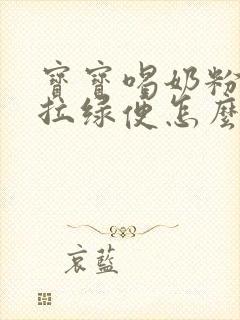 寶寶喝奶粉
拉绿便怎麼
哀藍